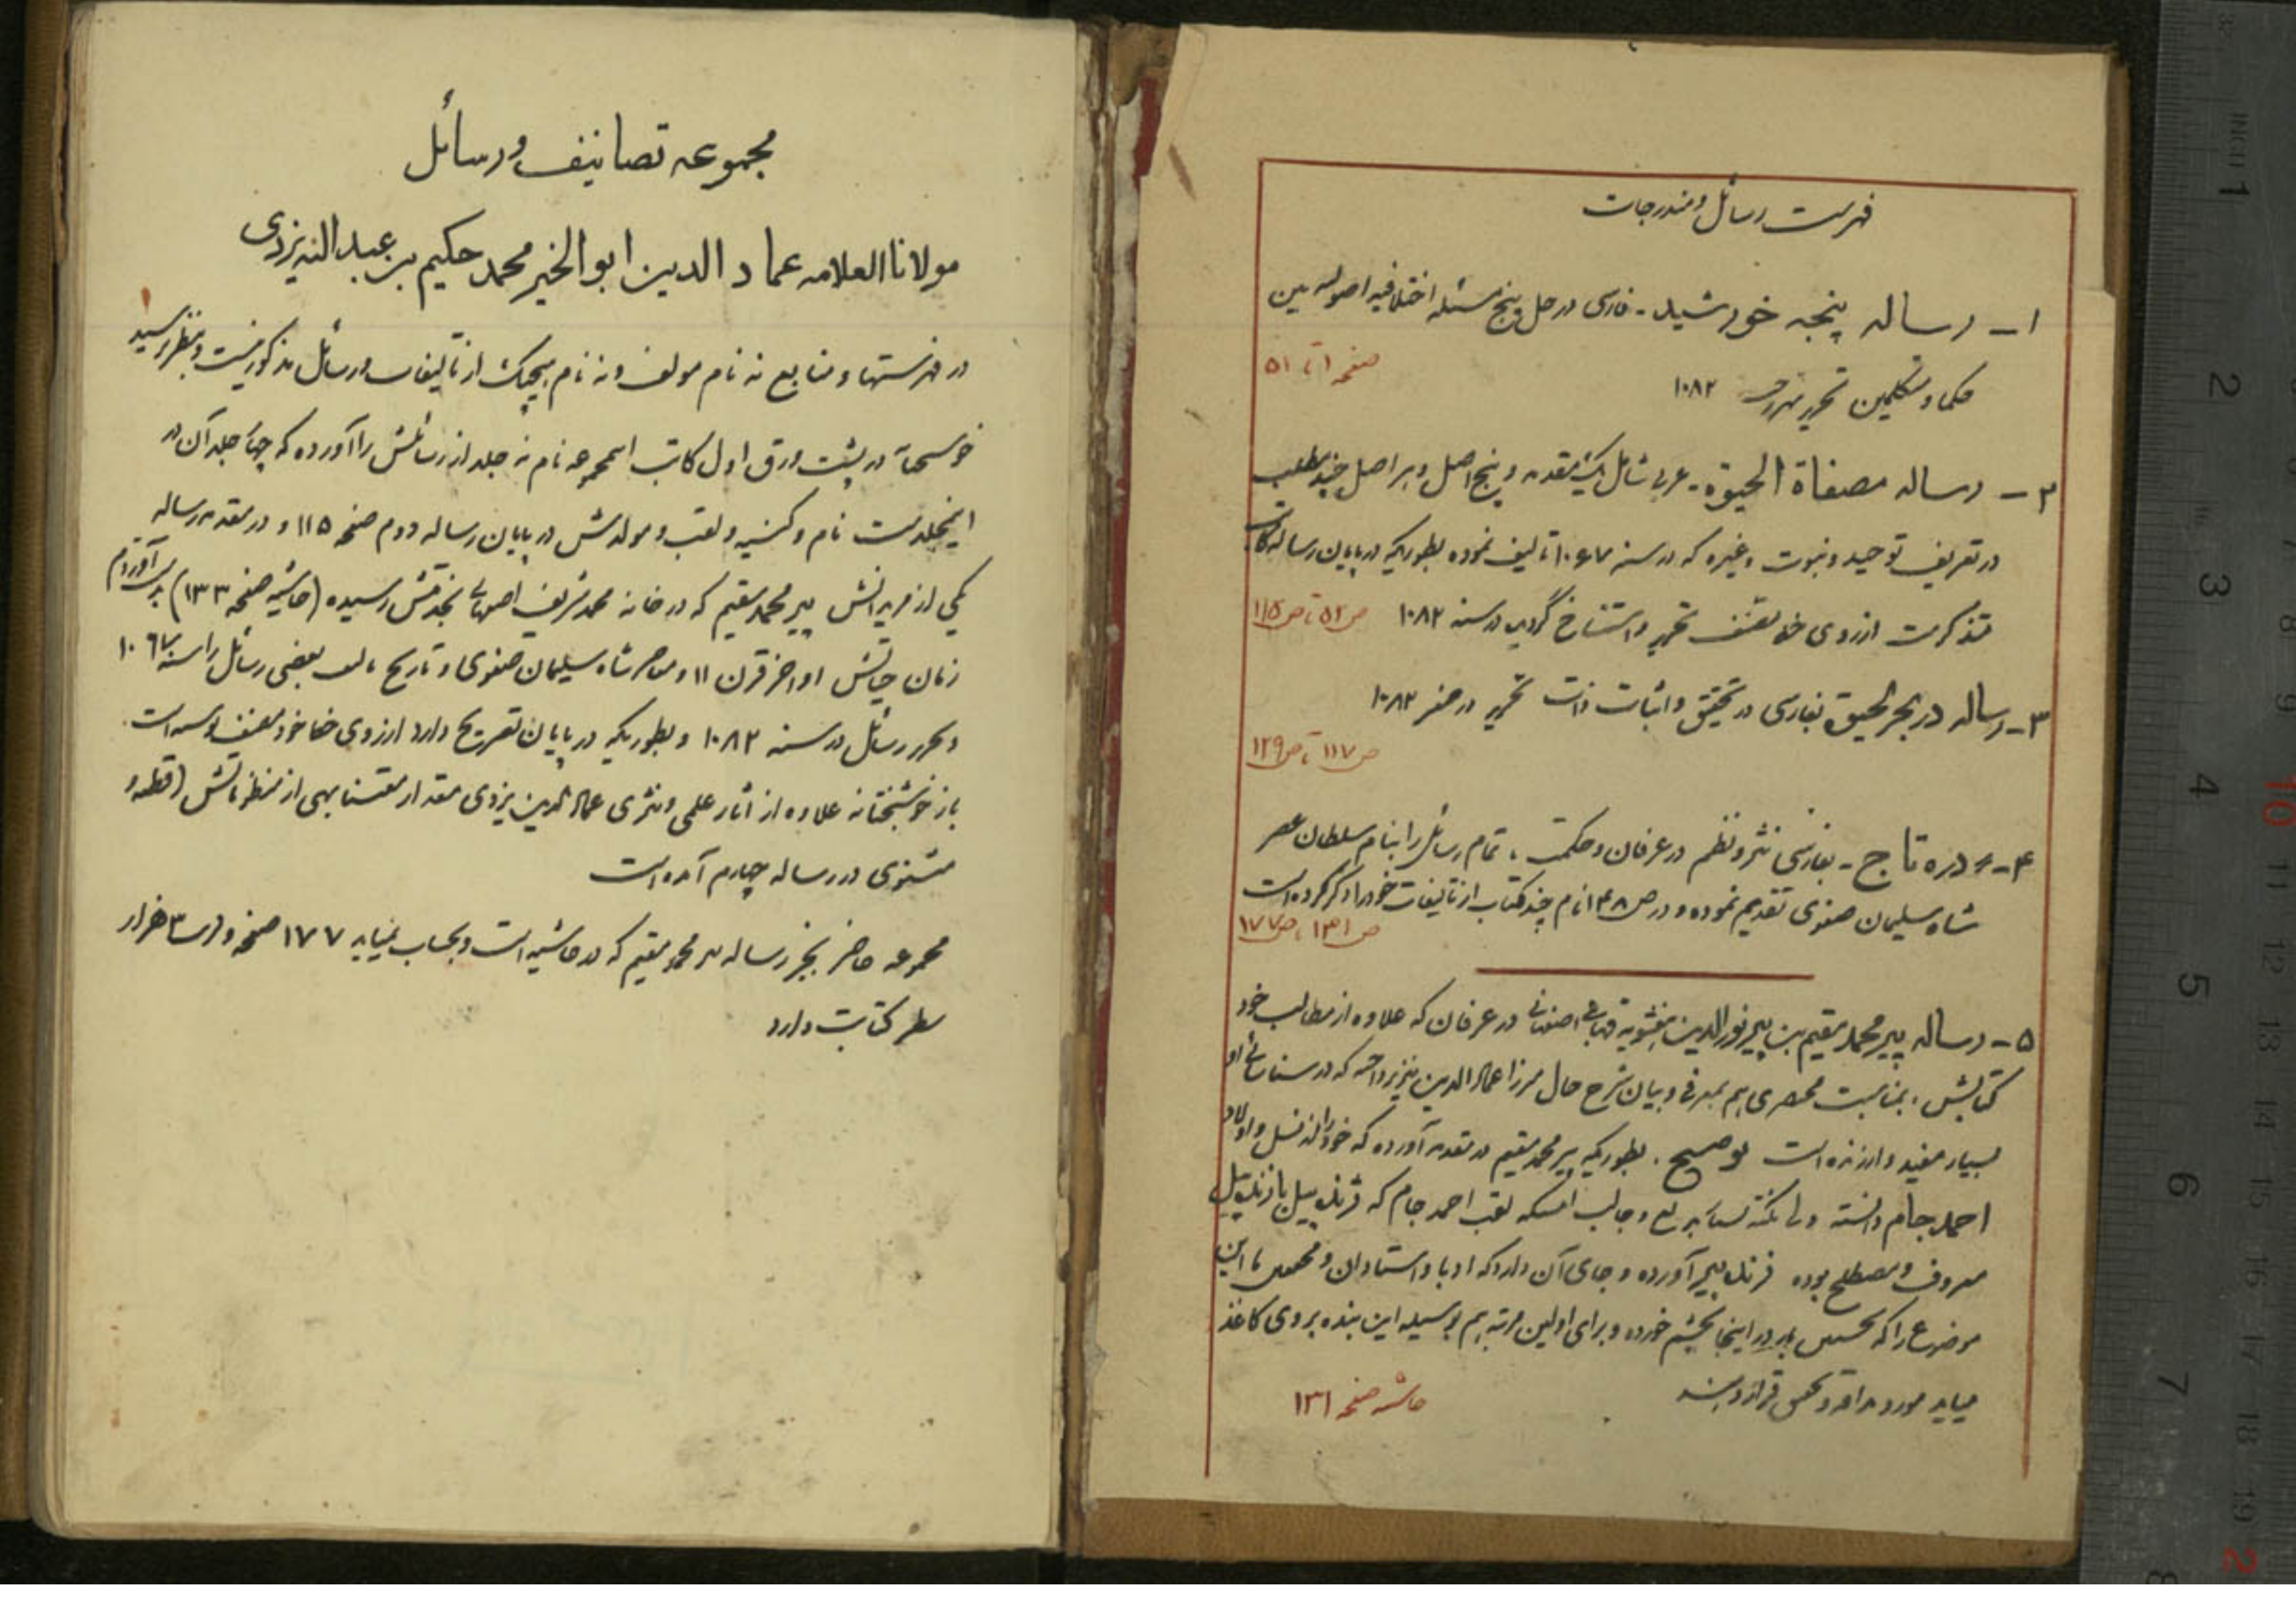 فهرست رسائل ومندرجات
۱ - رساله پنجه خورشید - فارسی در حل پنج مسئله اختلافیه اصولیه بین
حکما و متکلمین تحریر ۱۰۸۲
صفحه ۱ تا ۵۱
۲ - رساله مصفاة الحیوة - عربی شامل یک مقدمه و پنج اصل و هر اصل چند مطلب
در تعریف توحید و نبوت وغیره که در سنه ۱۰۶۷ تالیف نموده بطوریکه در پایان رساله کاتب
متذکرست از روی خط مصنف تحریر و استنساخ گردیده در سنه ۱۰۸۲
ص ۵۲ تا ص ۱۱۵
۳ - رساله در بحر لحیق بفارسی در تحقیق و اثبات ذات تحریر در صفر ۱۰۸۲
ص ۱۱۷ تا ص ۱۲۹
۴ - دره تاج - بفارسی نثر و نظم در عرفان و حکمت، تمام رسائل را بنام سلطان عصر
شاه سلیمان صفوی تقدیم نموده و در ص ۱۴۸ نام چند کتاب از تالیفات خود را ذکر کرده است
ص ۱۳۱ تا ص ۱۷۷
۵ - رساله پیر محمد مقیم بن پیر نورالدین اصفهانی در عرفان که علاوه از مطالب خود
کتابش، بمناسبت مختصری هم بمعرفی و بیان شرح حال میرزا عمادالدین یزدی پرداخته که در شناسائی او
بسیار مفید و ارزنده است. بطوریکه پیر محمد مقیم در مقدمه آورده که خود را از نسل و اولاد
احمد جام دانسته ولی نکته و جالب اینکه لقب احمد جام که ژنده پیل یا زنده پیل
معروف و مصطلح بوده آورده و جای آن دارد که ادبا و استادان و محققین این
موضوع را که نخستین بار در اینجا بچشم خورده و برای اولین مرتبه هم بوسیله این بنده بروی کاغذ
میاید مورد مداقه قرار دهند
حاشیه صفحه ۱۳۱
مجموعه تصانیف ورسائل
مولانا العلامه عماد الدین ابو الخیر محمد حکیم بن عبد الله یزدی
در فهرستها و منابع نه نام مولف و نه نام هیچیک از تالیفات و رسائل مذکور نیست و بنظر نرسید
خوشبختانه در پشت ورق اول کاتب این مجموعه نام نه جلد از رسائلش را آورده که چهار جلد آن در
اینجلدست نام و کنیه و لقب و مولدش در پایان رساله دوم صفحه ۱۱۵ و در مقدمه رساله
یکی از مریدانش پیر محمد مقیم که در خانه محمد شریف اصفهانی بخدمتش رسیده (حاشیه صفحه ۱۳۳) بدست آوردم
زمان حیاتش اواخر قرن ۱۱ و معاصر شاه سلیمان صفوی و تاریخ تالیف بعضی رسائل را سنه ۱۰۶۷
و تحریر رسائل در سنه ۱۰۸۲ و بطوریکه در پایان تصریح دارد از روی خط خود مصنف نوشته است
باز خوشبختانه علاوه از آثار علمی و نثری عمادالدین یزدی مقدار معتنابهی از منظوماتش (قطعه و
مثنوی) در رساله چهارم آمده است
مجموعه حاضر بجز رساله پیر محمد مقیم که در حاشیه است و بحساب نمیاید ۱۷۷ صفحه و در ۳ هزار
سطر کتابت دارد